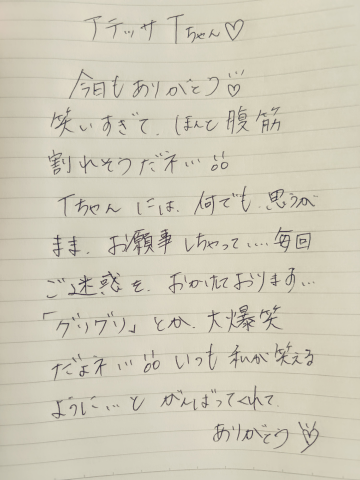 Tテッサ Tちゃん♡
今日もありがとう♡
笑いすぎて、ほんと腹筋
割れそうだネ
Tちゃんには、何でも、思うが
まま、お願事しちゃって....毎回
ご迷惑を、おかけております...
「グリグリ」とか、大爆笑
だよネ いつも私が笑える
ように...と がんばってくれて、
ありがとう♡